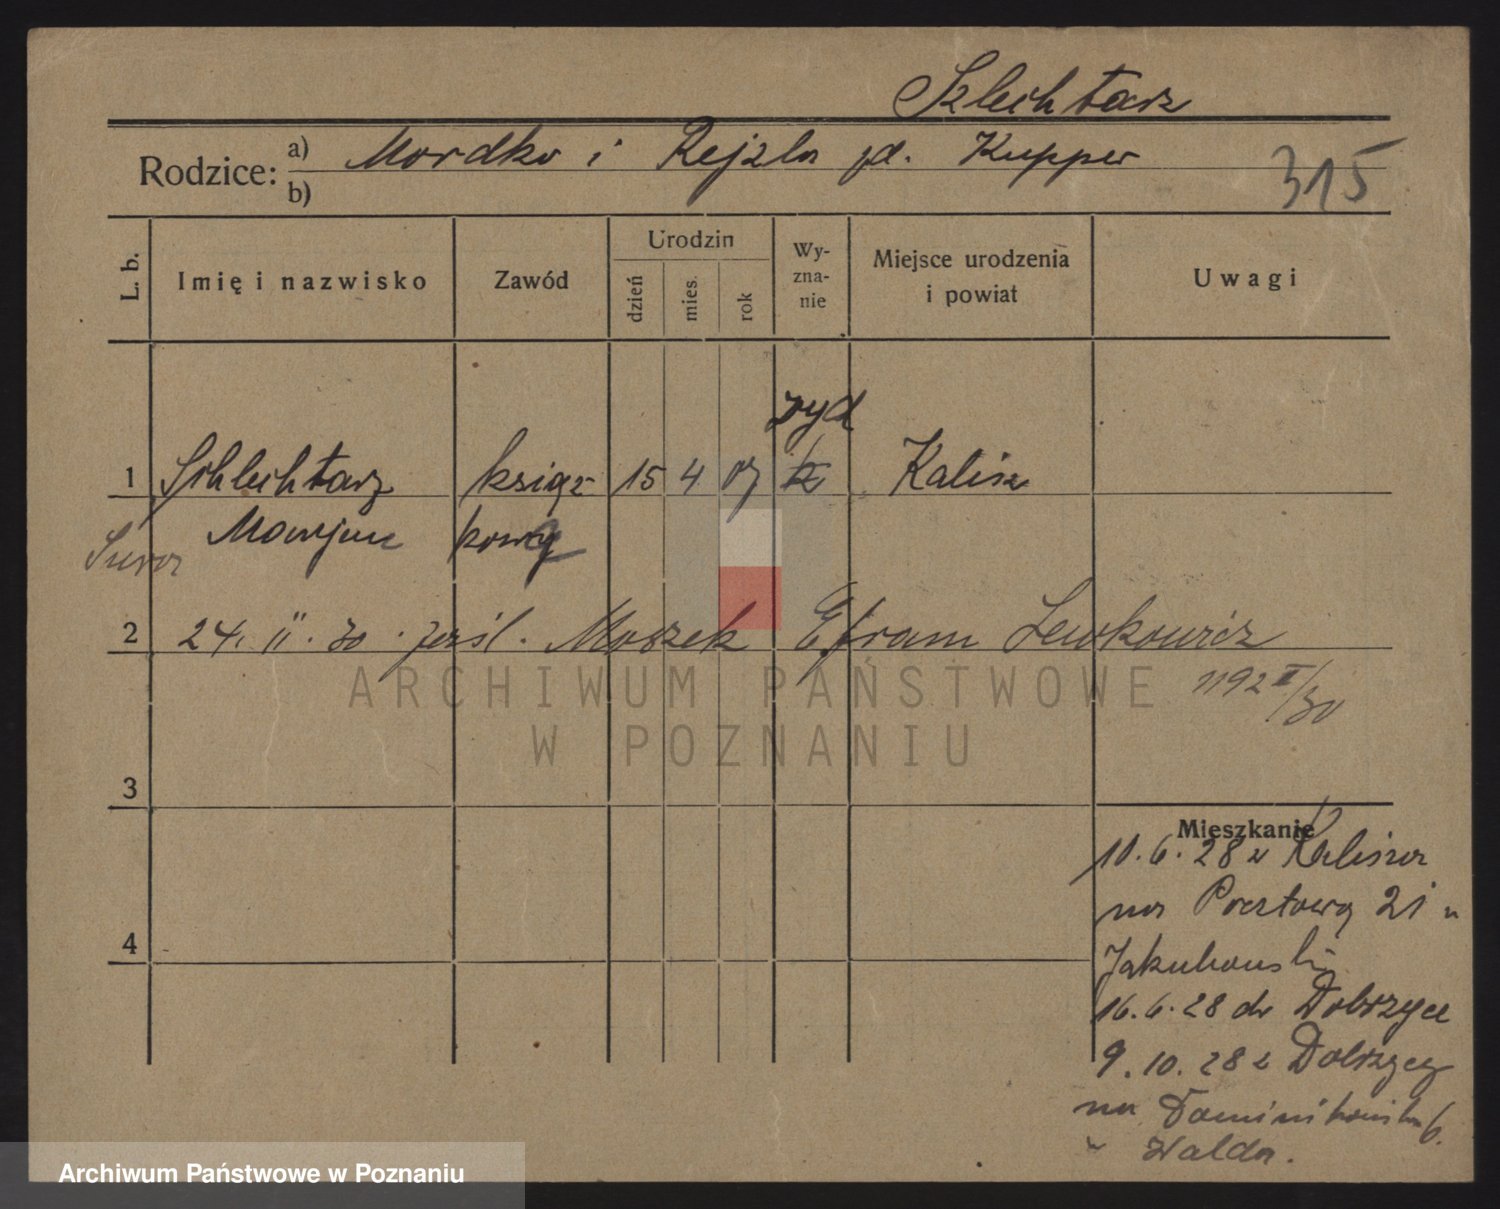 Szlechtarz
Rodzice: a) Mordko i Rejzla zd. Kupper
b)
315
L. b.
Imię i nazwisko
Zawód
Urodzin
dzień
mies.
rok
Wy-
zna-
nie
Miejsce urodzenia
i powiat
Uwagi
żyd
1 Schlechtarz książ- 15 4 07 Kalisz
kowy
2 24. II. 30. przśl. Moszek Efraim Lewkowicz
1192 II/30
ARCHIWUM PAŃSTWOWE
W POZNANIU
3
Mieszkanie
10.6.28 z Kalisza
na Pocztową 21 u
4
Jakubowski
16.6.28 do Dobrzyce
9.10.28 z Dobrzycy
na Dominikańska 6.
u Walda.
Archiwum Państwowe w Poznaniu